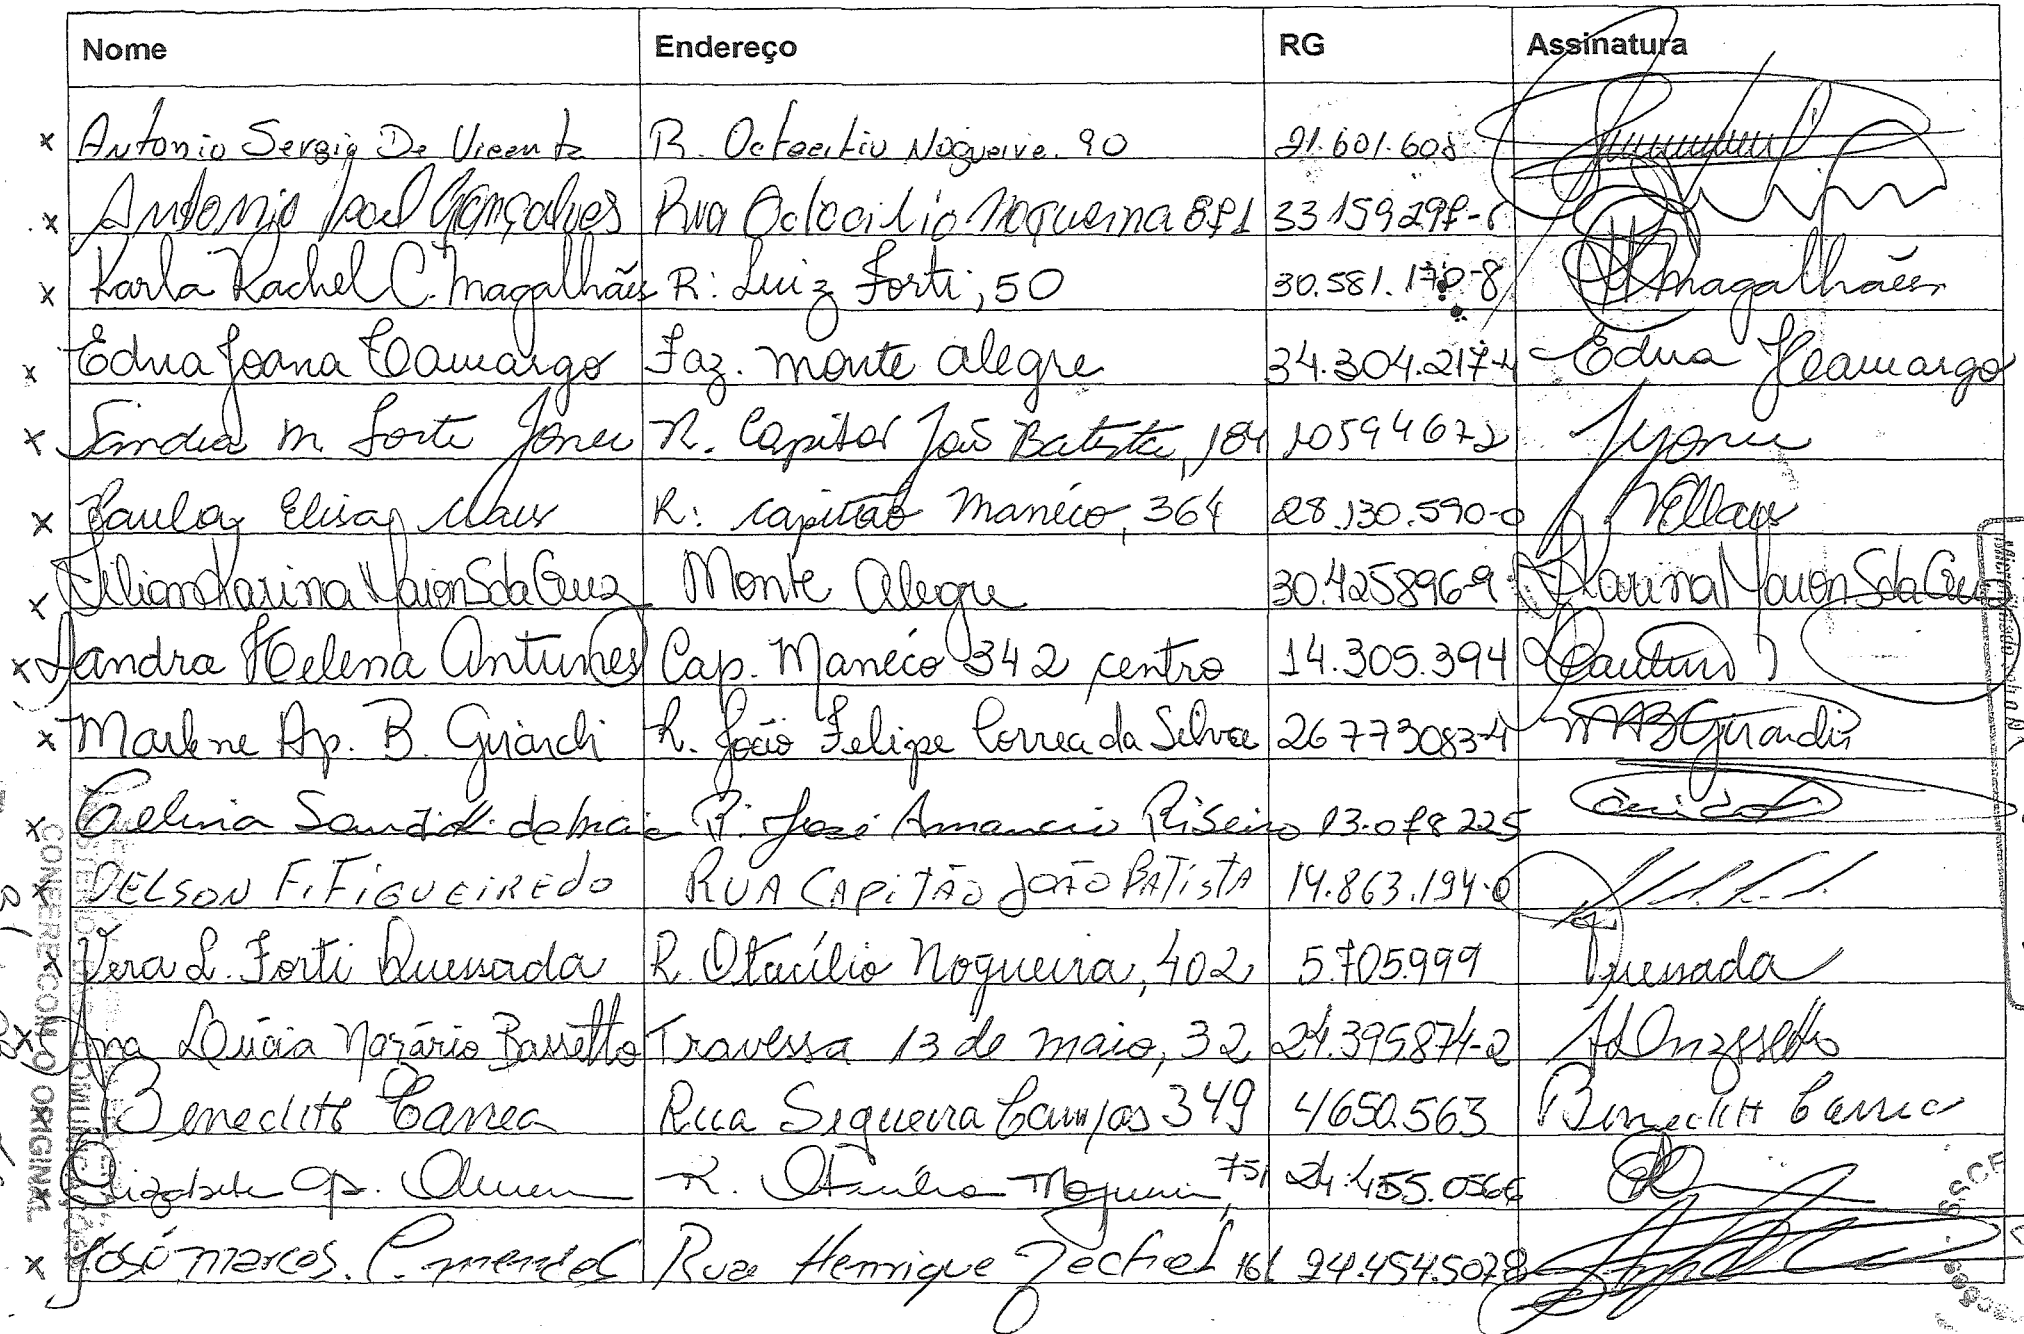 Nome Endereço RG Assinatura
x Antonio Sergio De Vicente R. Octacilio Nogueira. 90 21.601.608
x Antonio José Gonçalves Rua Octocilio Nogueira 871 33159297-
x Karla Rachel C. Magalhães R: Luiz Forti, 50 30.581.170-8 Magalhães
x Edna Joana Camargo Faz. Monte alegre 34.304.217-4 Edna J Camargo
x Sandra M. Forte R. Capitão João Batista, 184 10594672
x Paula Elisa R: Capitão Maneco, 364 28.130.590-0
x Lilian Karina Maron S da Cruz Monte Alegre 30.425896-9 Karina Maron S da Cruz
x Sandra Helena Antunes Cap. Maneco 342 centro 14.305.394
x Marlene Ap. B. Girardi R. João Felipe Correa da Silva 26773083-4 MABGirardi
x Celina R. José Amancio Ribeiro 13.078225
x DELSON F. FIGUEIREDO RUA CAPITÃO JOÃO BATISTA 14.863.194-0
x Vera L. Forti Quessada R. Otacílio Nogueira, 402 5.705.999 Quessada
x Ana Lúcia Nazário Bassetto Travessa 13 de maio, 32 24.395874-2
x Benedito Correa Rua Siqueira Campos 349 4650.563 Benedito Correa
x Elizabete Ap. R. Otacilio Nogueira, 751 24.455.0566
x José Marcos. C. Mendes Rua Henrique 161 24.454.5078
CONFERE COM O ORIGINAL